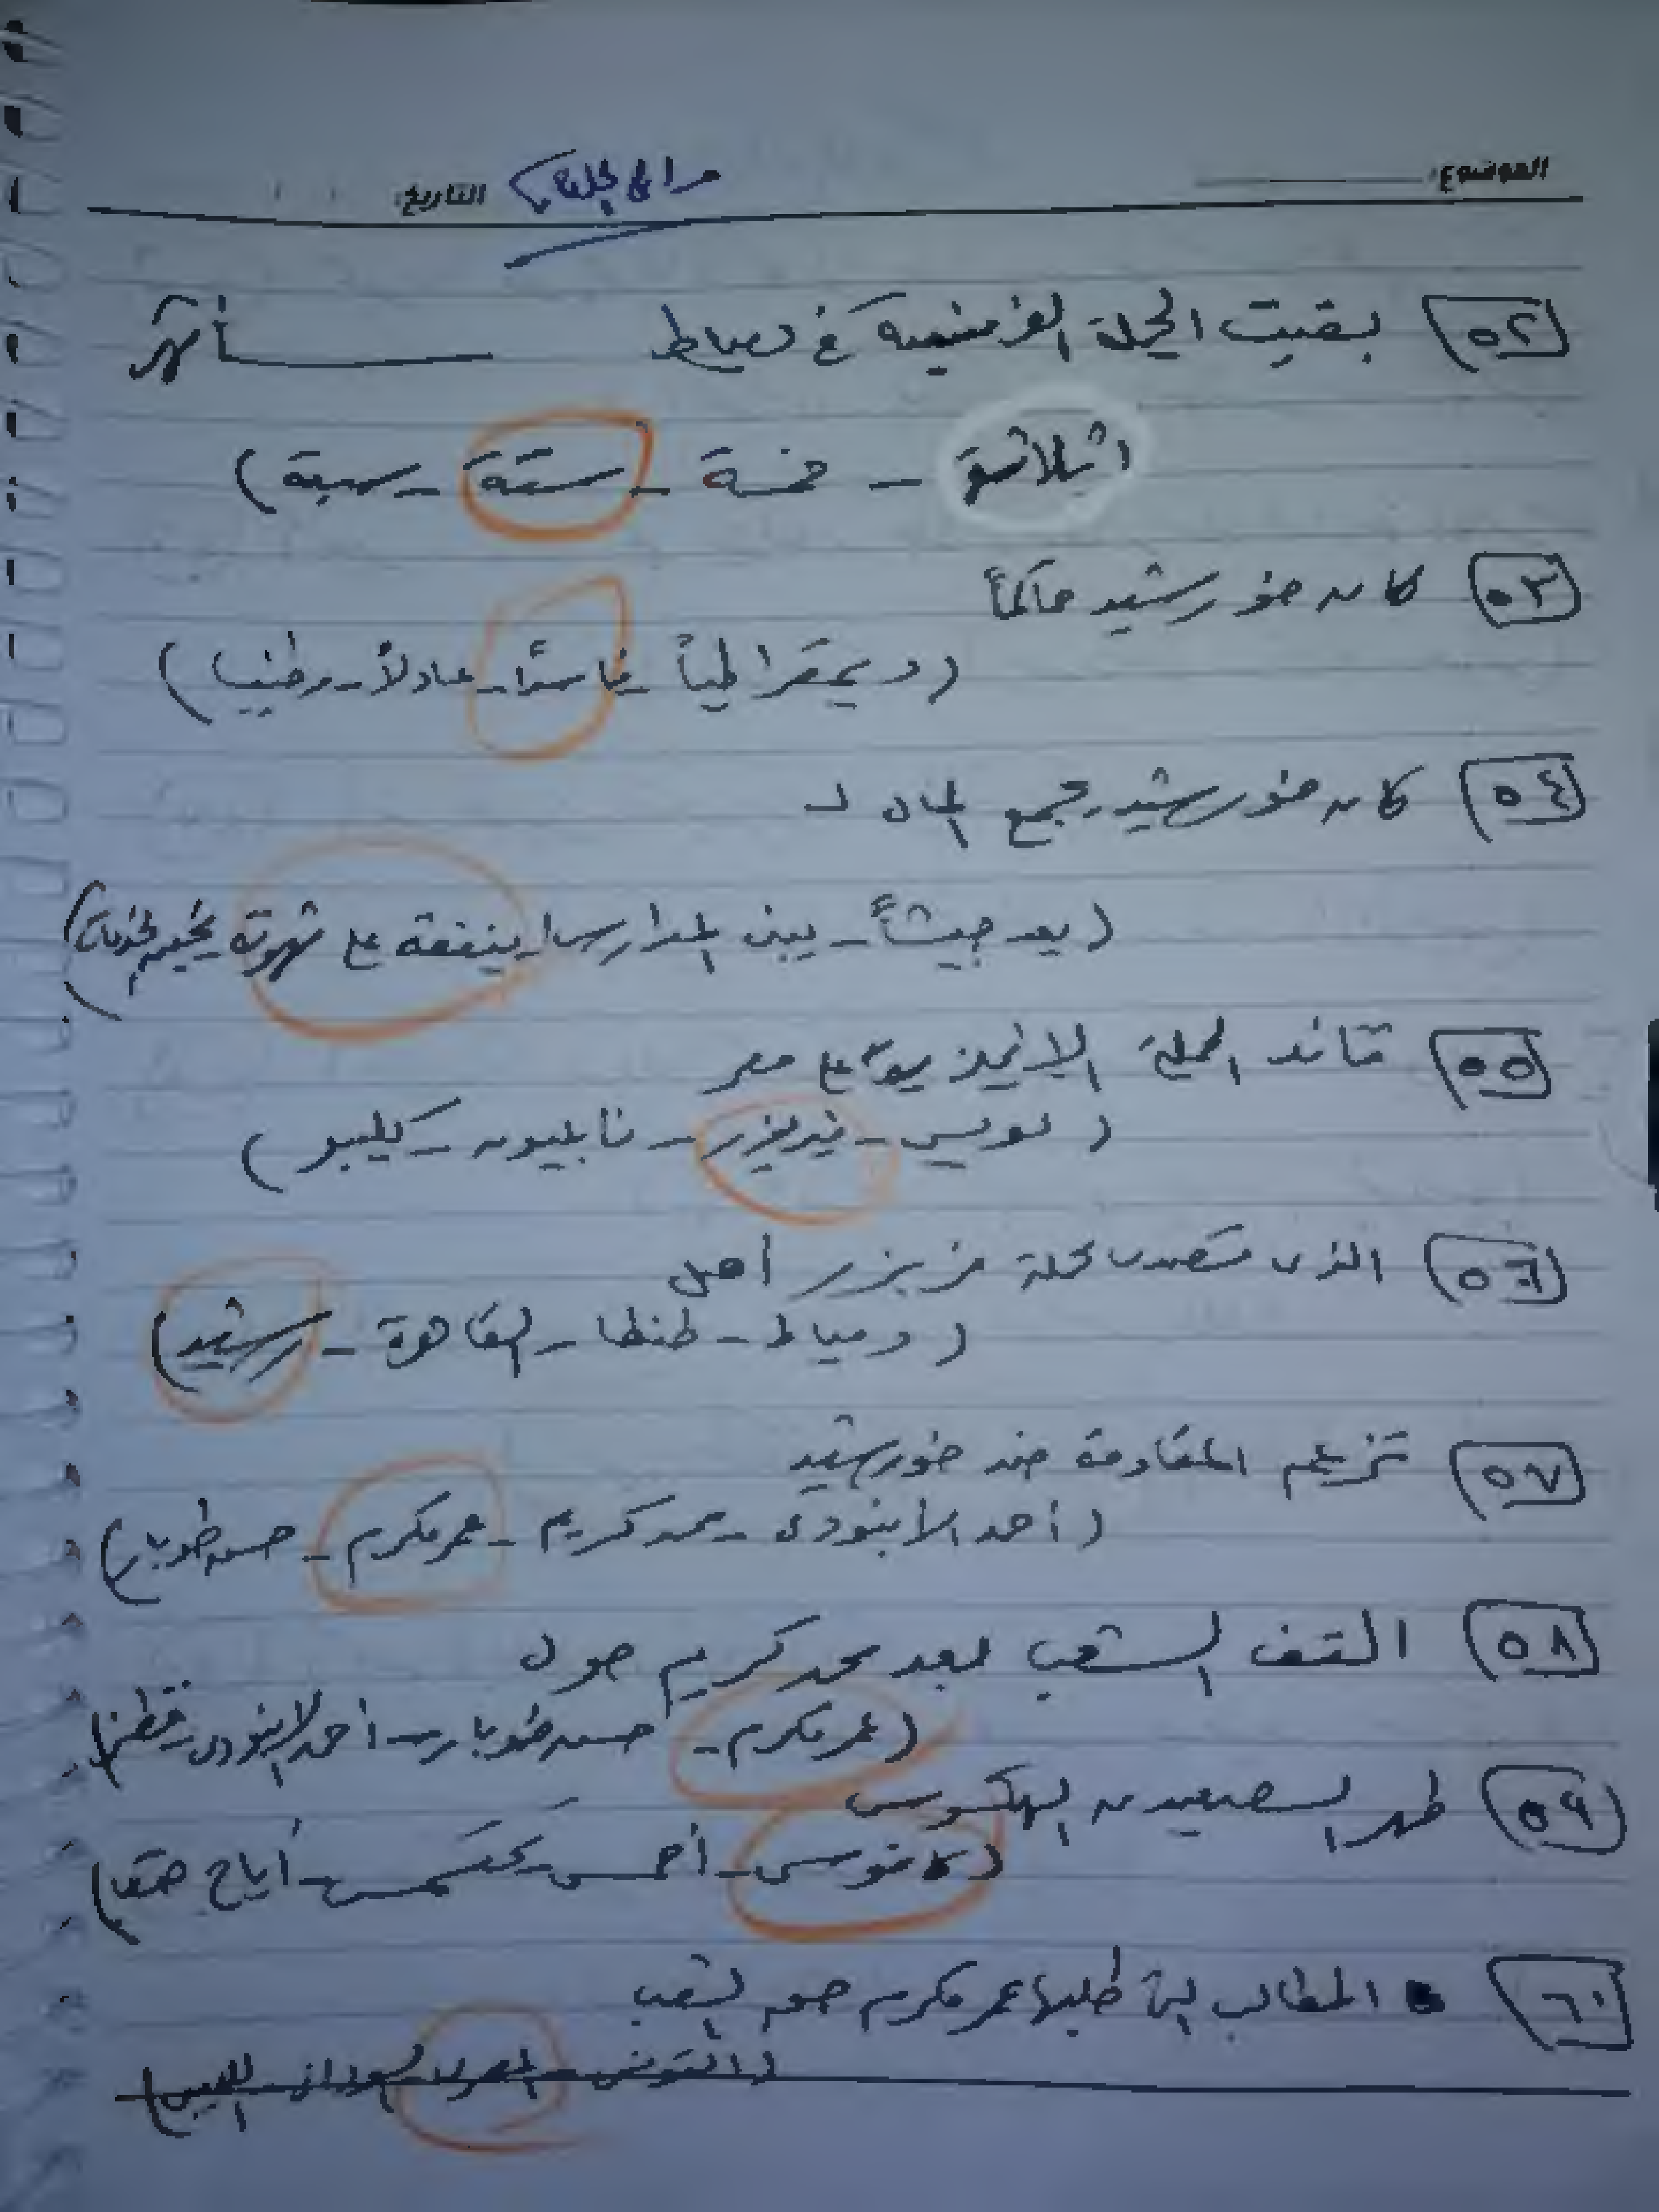 الموضوع:
التاريخ:
٥٢ بقيت الحملة الفرنسية في دمياط ـــــــ أشهر
(ثلاثة - خمسة - ستة - سبعة)
٥٣ كان خورشيد حاكماً
(ديمقراطياً - فاسدًا - عادلاً - وطنيا)
٥٤ كان خورشيد يجمع المال لـ
(يعد جيشاً - يبنى المدارس - ينفقه على شهوته
٥٥ قائد الحملة الإنجليزية على مصر
(لويس - فريزر - نابليون - كليبر)
٥٦ الذى تصدى لحملة فريزر أهل
(دمياط - طنطا - القاهرة - رشيد)
٥٧ تزعم المقاومة ضد خورشيد
(أحمد الأبنودى - محمد كريم - عمر مكرم - حسن طوبار)
٥٨ التف الشعب بعد محمد كريم حول
(عمر مكرم - حسن طوبار - أحمد الابنودى - قطز)
٥٩ طهر الصعيد من الهكسوس
(كاموس - أحمس - تحتمس - أياح حتب)
٦٠ المطالب التى طلبها عمر مكرم حق الشعب
(التونسى - المصرى - السودانى - الليبى)